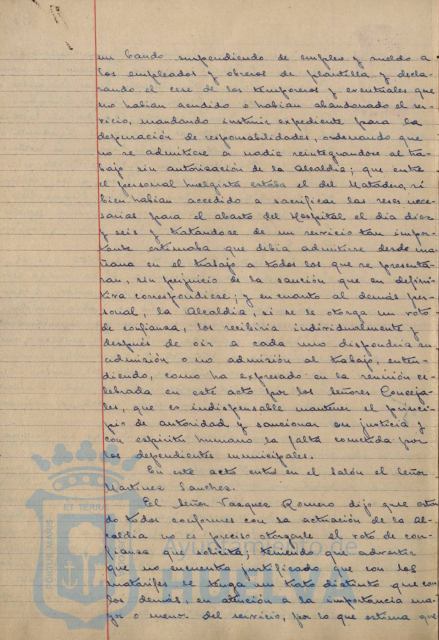 un bando suspendiendo de empleo y sueldo a
los empleados y obreros de plantilla y decla-
rando el cese de los temporeros y eventuales que
no habian acudido o habian abandonado el ser-
vicio, mandando instruir expediente para la
depuración de responsabilidades, ordenando que
no se admitiese a nadie reintegrandose al tra-
bajo sin autorización de la Alcaldia; que entre
el personal huelguista estaba el del Matadero, si
bien habian accedido a sacrificar las reses nece-
sarias para el abasto del Hospital el dia diez
y seis y tratandose de un servicio tan impor-
tante estimaba que debia admitirse desde ma-
ñana en el trabajo a todos los que se presenta-
ran, sin perjuicio de la sanción que en defini-
tiva correspondiese; y en cuanto al demás per-
sonal, la Alcaldia, si se le otorga un voto
de confianza, los recibiria individualmente y
despues de oir a cada uno dispondria su
admisión o no admisión al trabajo, enten-
diendo, como ha expresado en la reunión ce-
lebrada en este acto por los Señores Conceja-
les, que es indispensable mantener el princi-
pio de autoridad y sancionar en justicia y
con espiritu humano la falta cometida por
los dependientes municipales.
En este acto entra en el salón el Señor
Martinez Sanchez.
El Señor Vazquez Romero dijo que estan-
do todos conformes con la actuación de la Al-
caldia no es preciso otorgarle el voto de con-
fianza que solicita; teniendo que advertir
que no encuentra justificado que con los
matarifes se tenga un trato distinto que con
los demás, en atención a la importancia ma-
yor o menor del servicio, por lo que estima que
PORTUS MARIS ET TERRAE
Ayuntamiento de
HUELVA